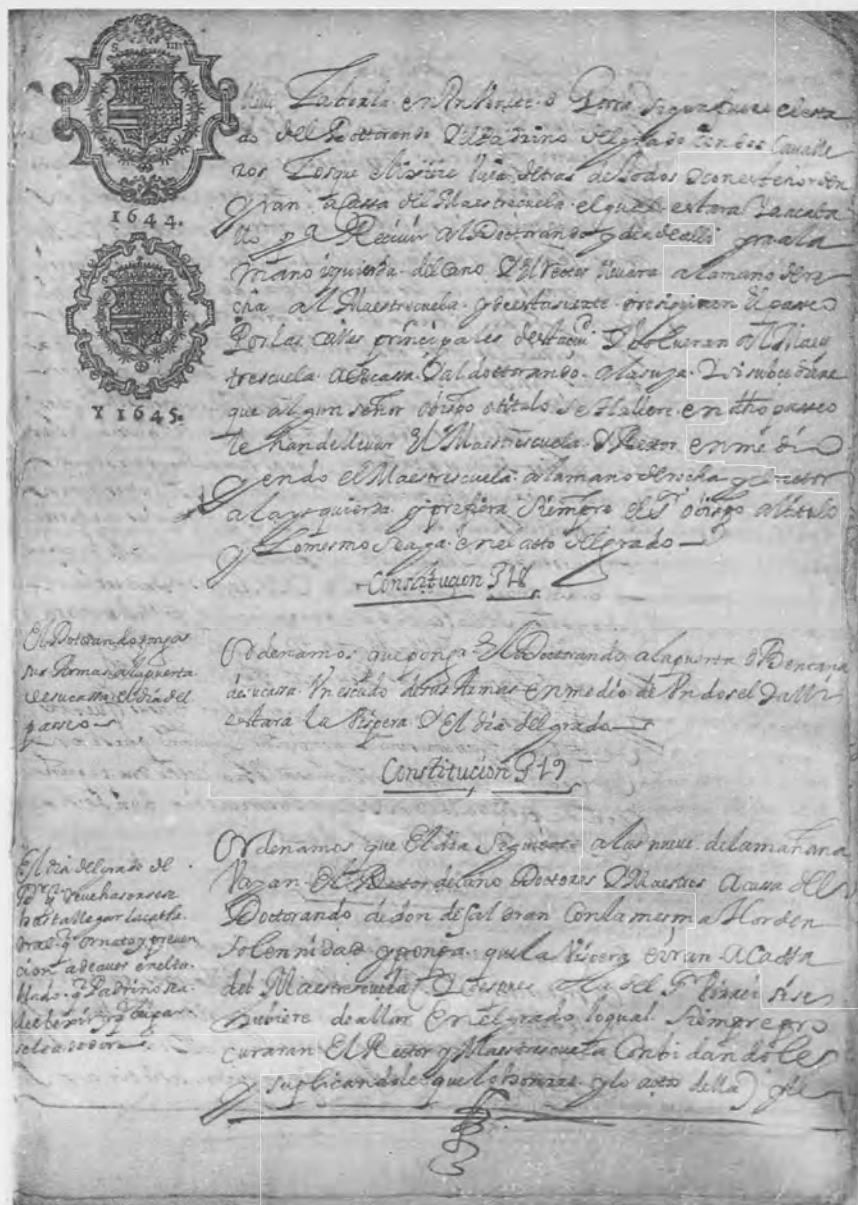 1644.
Y 1645.
do del Doctorando y el Padrino del grado con dos Cavalle
ros los que
yran a Cassa del Maestrescuela el qual estara a caba
llo p.ª Recivir al Doctorando y desde alli yra a la
mano izquierda del Cano y el Rector llevara a la mano dere
cha al Maestrescuela y de esta suerte prosiguiren el paseo
Por las calles principales desta ciu.d y bolueran al Maes
trescuela a su cassa y al doctorando a la suya y si subcediere
que algun señor obispo o titulo se hallere en dho passeo
le han de llevar el Maestrescuela y Rector en medio
yendo el Maestrescuela a la mano derecha y Rector
a la ysquierda y prefera siempre el s.r obispo al titulo
y lo mesmo se aga en el acto del grado
Constitucion 318
El Doctorando ponga
sus Armas a la puerta
de su cassa el dia del
passeo
Ordenamos que ponga el Doctorando a la puerta o Bentana
de su cassa Un escudo de sus Armas en medio de Un dosel y alli
estara la Vispera y el dia del grado
Constitucion 319
El dia del grado
hasta llegar la cathe
dral ornato y preven
cion a de auer en el ta
blado Padrino
Ordenamos que El dia siguiente a las nueve de la mañana
Vayan el Rector decano Doctores y Maestros a cassa del
Doctorando de don de saldran con la mesma Horden
solennidad y ponpa que la Vispera e yran a Cassa
del Maestrescuela y despues a la del S.r Virrei si se
huviere de allar en el grado lo qual siempre pro
curaran El Rector y Maestrescuela Conbidandole
y suplicandole que los honrre